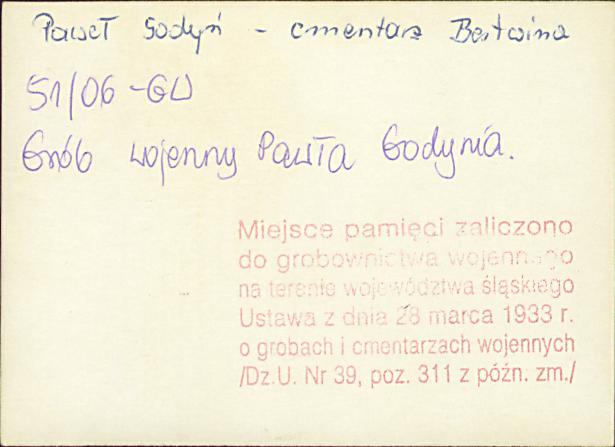 Paweł Godyń - cmentarz Bestwina
S1/06-GW
Grób wojenny Pawła Godynia.
Miejsce pamięci zaliczono
do grobownictwa wojennego
na terenie województwa śląskiego
Ustawa z dnia 28 marca 1933 r.
o grobach i cmentarzach wojennych
/Dz.U. Nr 39, poz. 311 z późn. zm./